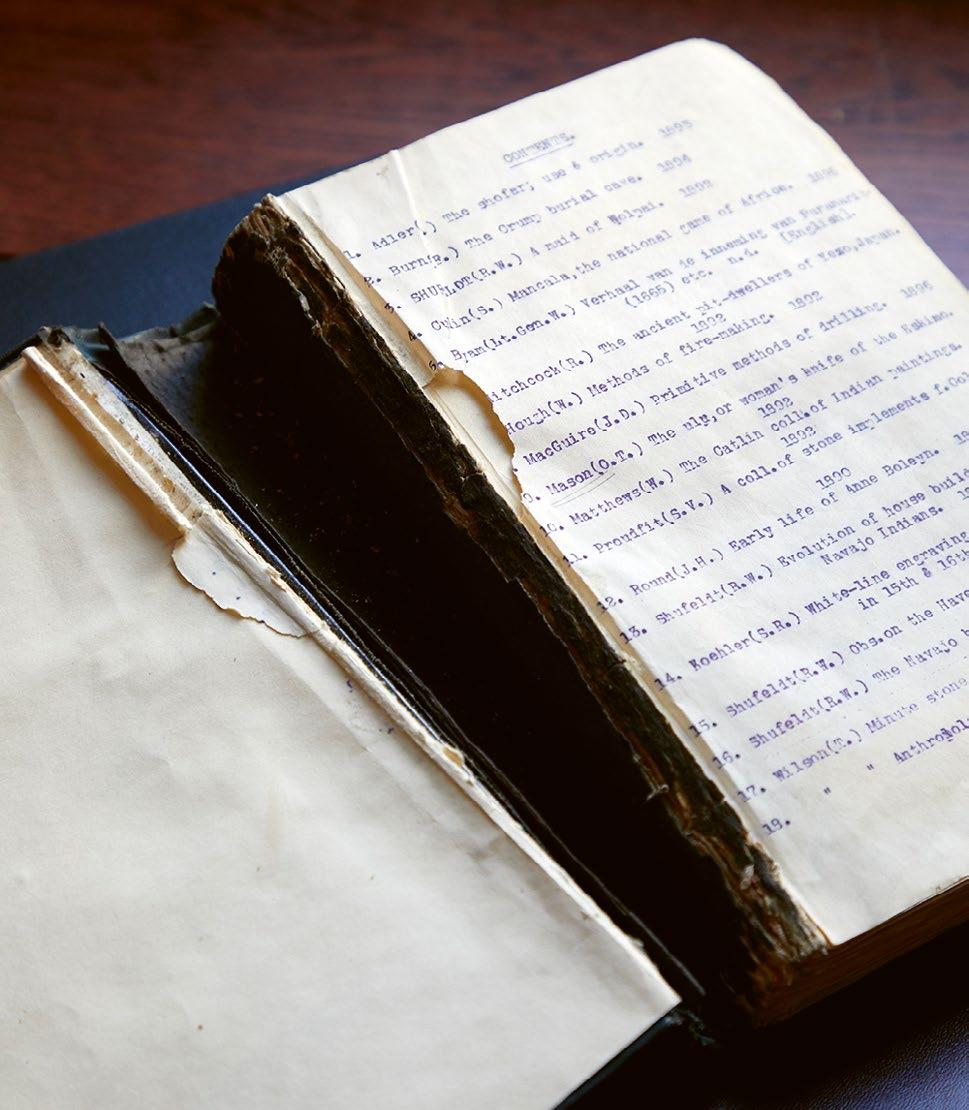 CONTENTS.
1. Adler(.) The shofar; use & origin. 1893
2. Burn(R.) The Crump burial cave. 1894
3. SHUFLDT(R.W.) A maid of Wolpai. 1892
4. Culin(S.) Mancala,the national game of Africa. 1896
5. Byam(Lt.Gen.W.) Verhaal van ie inneming van Paramaribo
(1665) etc. n.d. [English].
itchcock(R.) The ancient pit-dwellers of Yezo,Japan.
Hough(W.) Methods of fire-making. 1892
MacGuire(J.D.) Primitive methods of drilling. 1896
9. Mason(O.T.) The ulu,or woman's knife of the Eskimo.
1892
10. Matthews(W.) The Catlin coll.of Indian paintings.
1892
11. Proudfit(S.V.) A coll.of stone implements f.
1890
12. Round(J.H.) Early life of Anne Boleyn.
13. Shufeldt(R.W.) Evolution of house
Navajo Indians.
14. Koehler(S.R.) White-line engraving
in 15th & 16th
15. Shufeldt(R.W.) Obs.on the
16. Shufeldt(R.W.) The Navajo
17. Wilson(T.) Minute stone
18. " "